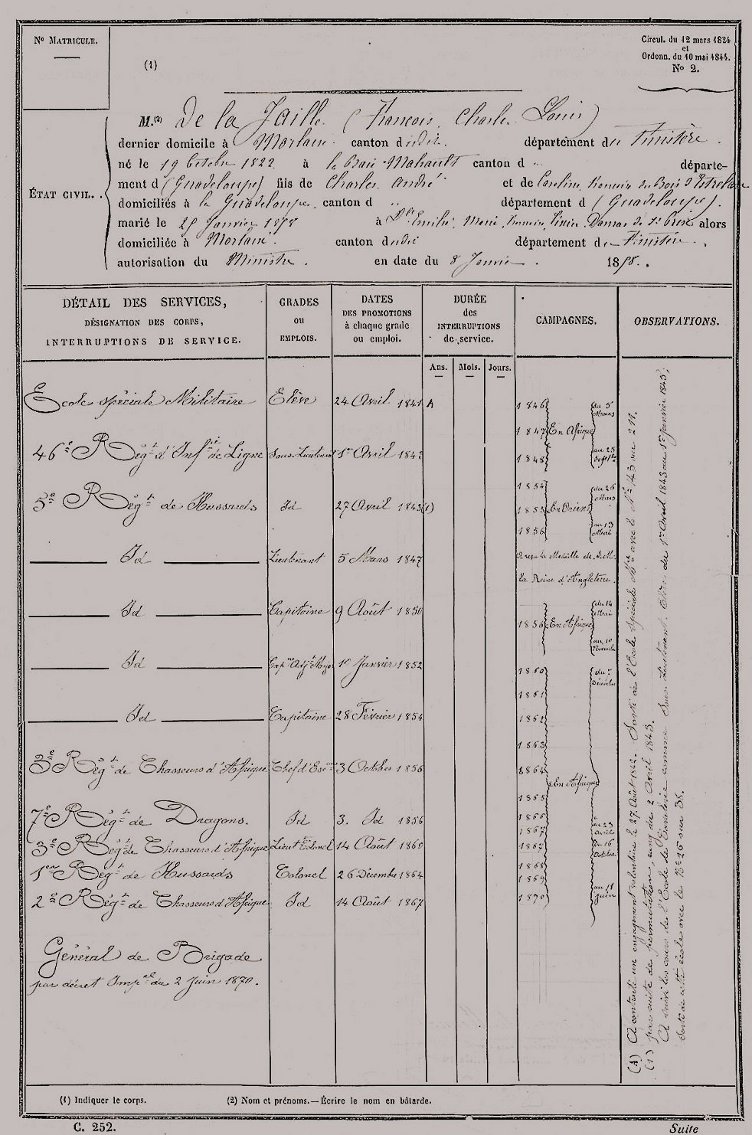 No MATRICULE.
Circul. du 12 mars 1824
et
Ordonn. du 10 mai 1844.
No 2.
(1)
M.(2) De la Jaille (François, Charles Louis)
dernier domicile à Morlaix canton dudit département du Finistère.
né le 19 Octobre 1822 à la Baie-Mahault canton d " départe-
ment d (Guadeloupe) fils de Charles André et de Caroline
domiciliés à la Guadeloupe canton d " département d (Guadeloupe).
marié le 25 Janvier 1858 à Dlle Emilie, Marie alors
domiciliée à Morlaix canton dudit département du Finistère.
autorisation du Ministre en date du 8 Janvier 1858.
ÉTAT CIVIL.
DÉTAIL DES SERVICES,
DÉSIGNATION DES CORPS,
INTERRUPTIONS DE SERVICE.
GRADES
OU
EMPLOIS.
DATES
DES PROMOTIONS
à chaque grade
ou emploi.
DURÉE
des
INTERRUPTIONS
de service.
CAMPAGNES.
OBSERVATIONS.
Ans. Mois. Jours.
Ecole spéciale Militaire Elève 24 Avril 1841
46e Régt d'Infie de Ligne Sous-Lieutenant 1er Avril 1843
5e Régt de Hussards Id 27 Avril 1843 (1)
Id Lieutenant 5 Mars 1847
Id Capitaine 9 Août 1850
Id Capne Adjt Major 10 Janvier 1852
Id Capitaine 28 Février 1854
3e Régt de Chasseurs d'Afrique Chef d'Eson 3 Octobre 1856
7e Régt de Dragons. Id 3. Id 1856
3e Régt de Chasseurs d'Afrique Lieut Colonel 14 Août 1860
1er Régt de Hussards Colonel 26 Décembre 1864
2e Régt de Chasseurs d'Afrique Id 14 Août 1867
Général de Brigade
par décret Impal du 2 Juin 1870.
1846 du 5 Mars
1847 En Afrique
1848 au 25 Septbre
1854 du 26 Mars
1855 En Orient
1856 au 13 Mai
a reçu la Médaille de S.M.
la Reine d'Angleterre.
du 14 Mai
1856 En Afrique
1860
1861
1862
1863
1864 En Afrique
1865
1866
1867
1868
1869
1870 au 11 Juin
A contracté un engagement volontaire le 27 Août 1842. Sorti de l'Ecole spéciale Mre avec le No 143 sur 211.
(1) par suite de permutation, du 2 Avril 1843.
A suivi les cours de l'Ecole de Cavalerie comme Sous Lieutenant Elève du 1er Avril 1843 au 1er Janvier 1845,
Sorti de cette école avec le No 26 sur 38.
(1) Indiquer le corps. (2) Nom et prénoms.—Écrire le nom en bâtarde.
C. 252. Suite